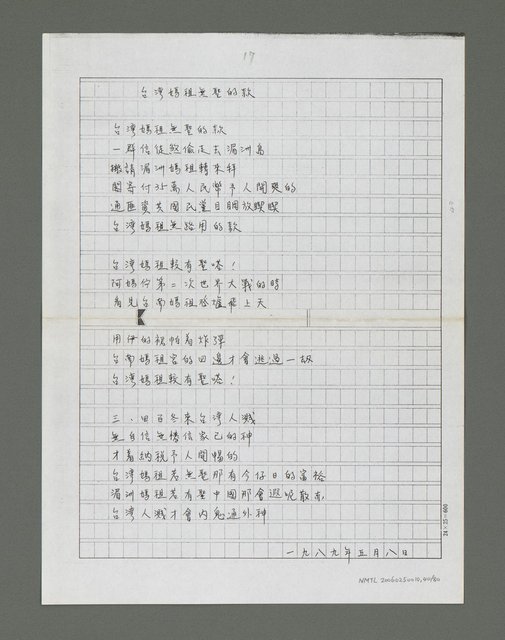 17
台灣媽祖無聖的款
台灣媽祖無聖的款
一群信徒煞偷走去湄洲島
邀請湄洲媽祖轉來拜
閣寄付35萬人民幣予人開㷫的
通匯資共國民黨目睭放瞨瞨
台灣媽祖無路用的款
台灣媽祖較有聖嗒!
阿媽佇第二次世界大戰的時
看見台南媽祖發爐飛上天
用伊的裙帕着炸彈
台南媽祖宮的四邊才會逃過一劫
台灣媽祖較有聖嗒!
三、四百冬來台灣人濺
無自信無構信家己的神
才着納稅予人開暢的
台灣媽祖若無聖那有今仔日的富裕
湄洲媽祖若有聖中國那會遐呢散赤
台灣人濺才會內鬼通外神
一九八九年五月八日
24×25=600
NMTL 20060250010,40/80